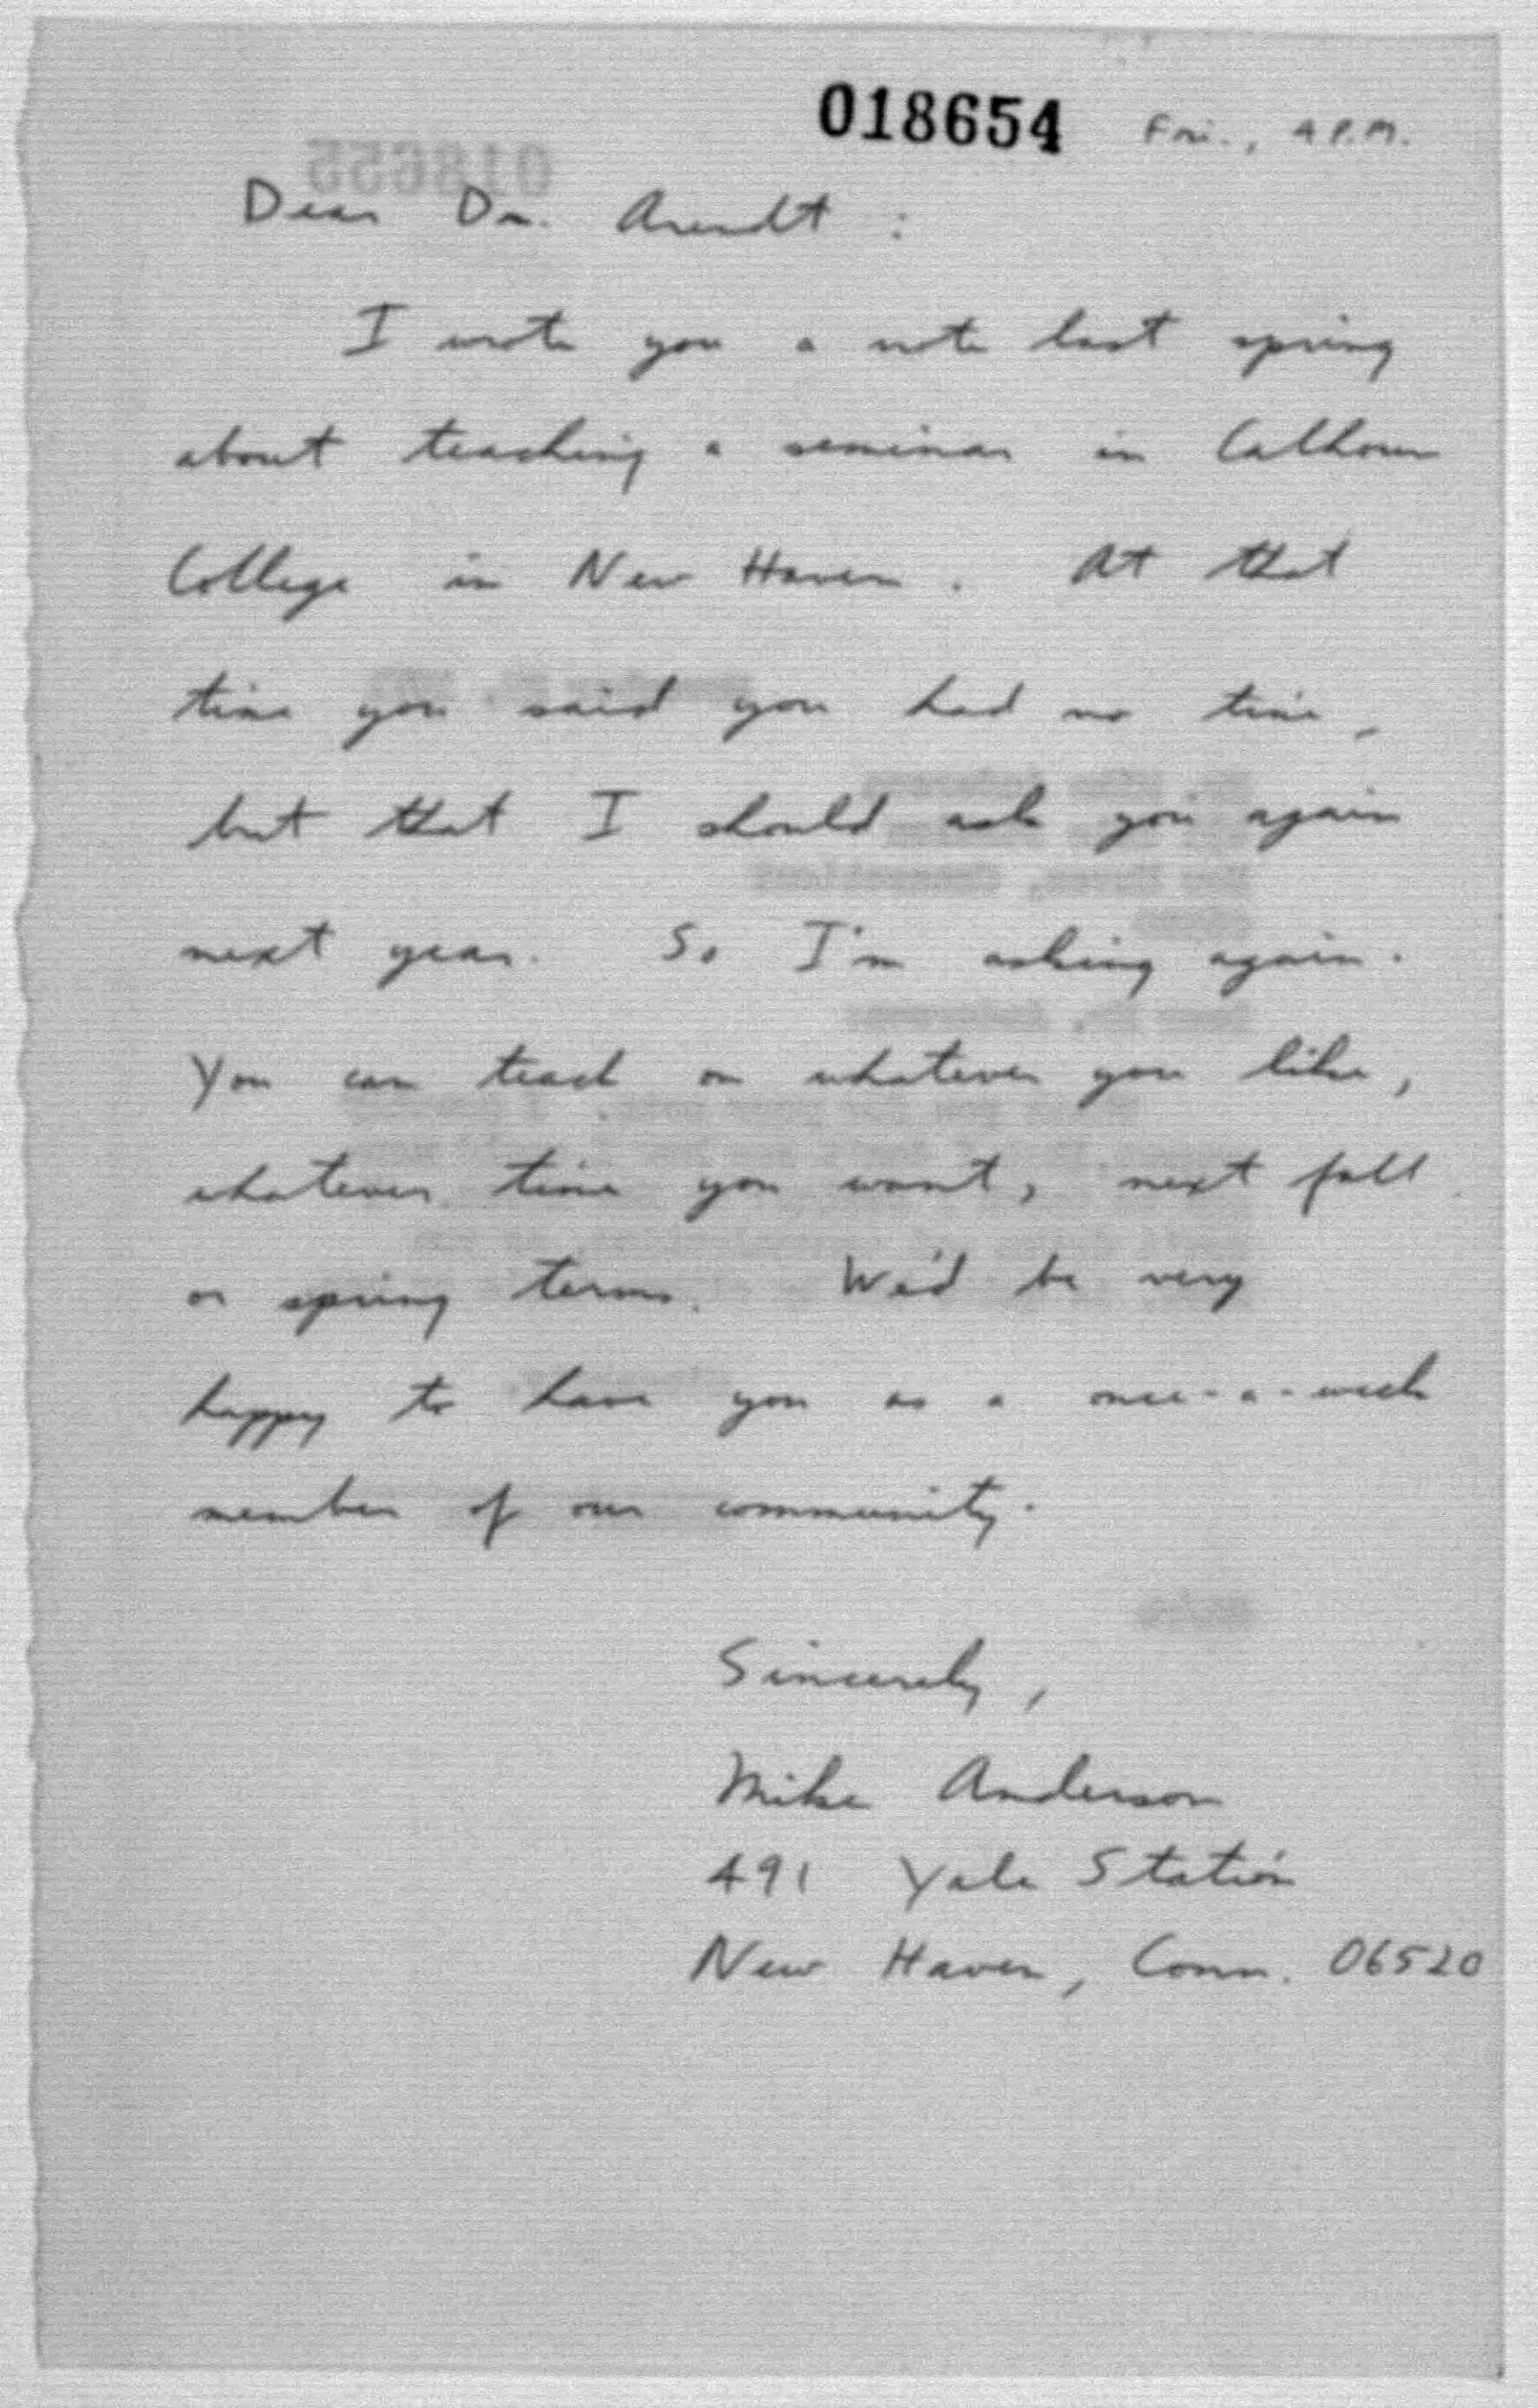 018654 Fri., 4 P.M.
Dear Dr. Arendt :
I wrote you a note last spring
about teaching a seminar in Calhoun
College in New Haven. At that
time you said you had no time,
but that I should ask you again
next year. So I'm asking again.
You can teach on whatever you like,
whatever time you want, next fall
or spring terms. We'd be very
happy to have you as a once-a-week
member of our community.
Sincerely,
Mike Anderson
491 Yale Station
New Haven, Conn. 06520